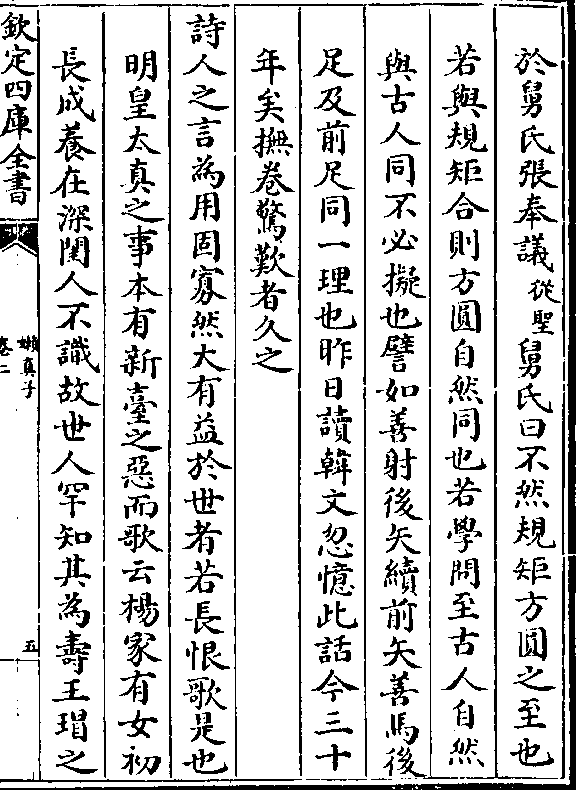 於舅氏張奉議從聖舅氏曰不然規矩方圓之至也
若與規矩合則方圓自然同也若學問至古人自然
與古人同不必擬也譬如善射後矢續前矢善馬後
足及前足同一理也昨日讀韓文忽憶此話今三十
年矣撫卷驚歎者久之
詩人之言為用固寡然大有益於世者若長恨歌是也
明皇太真之事本有新臺之惡而歌云楊家有女初
長成養在深閨人不識故世人罕知其為壽王瑁之
欽定四庫全書
嬾真子
卷二
五